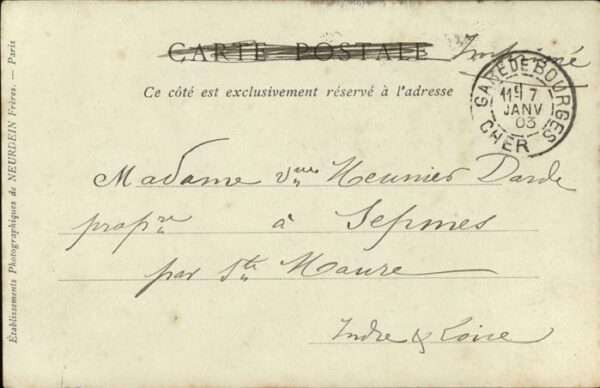 CARTE POSTALE Imprimé
Ce côté est exclusivement réservé à l'adresse
GARE DE BOURGES
7
JANV
03
CHER
Madame Vve Meunier Darde
propre à Sepmes
par Ste Maure
Indre & Loire
Établissements Photographiques de NEURDEIN Frères. — Paris